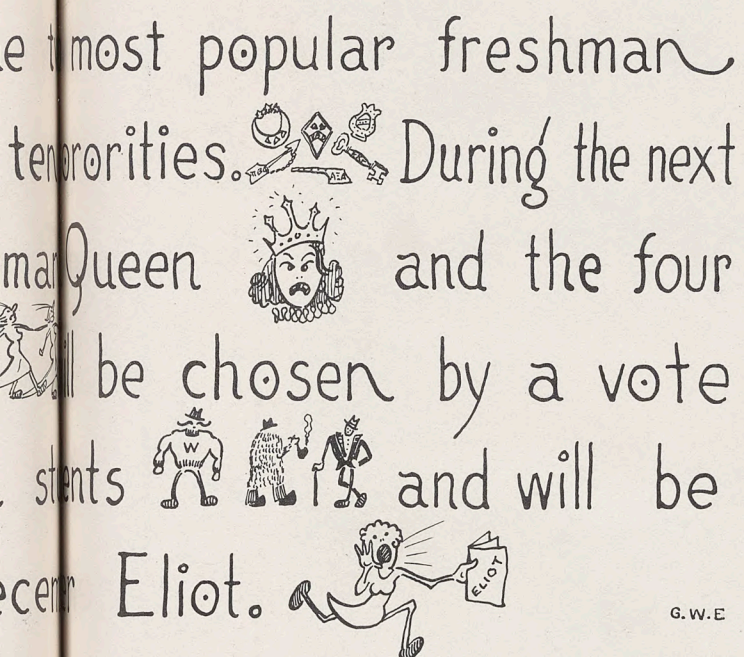 e t most popular freshman
ten ororities. During the next
man Queen and the four
ill be chosen by a vote
W
st ents and will be
ecem r Eliot.
ELIOT
G.W.E